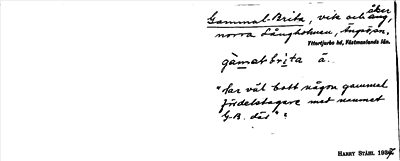 åker
Gammal-Brita, vik och äng,
norra Långholmen, Ängsö sn.
Yttertjurbo hd, Västmanlands län.
gàmalbrita å.
"har väl bott någon gammal
fördelstagare med namnet
G-B. där":
HARRY STÅHL 1937